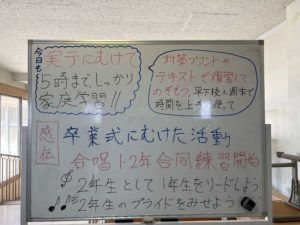 今日も
実テにむけて
5時までしっかり
家庭学習!!
対策プリントや
テキストで復習して
のぞもう。早下校と週末で
時間を上手に使って
感伝
卒業式にむけた活動
合唱1・2年合同練習開始
2年生として1年生をリードしよう
2年生のプライドをみせよう